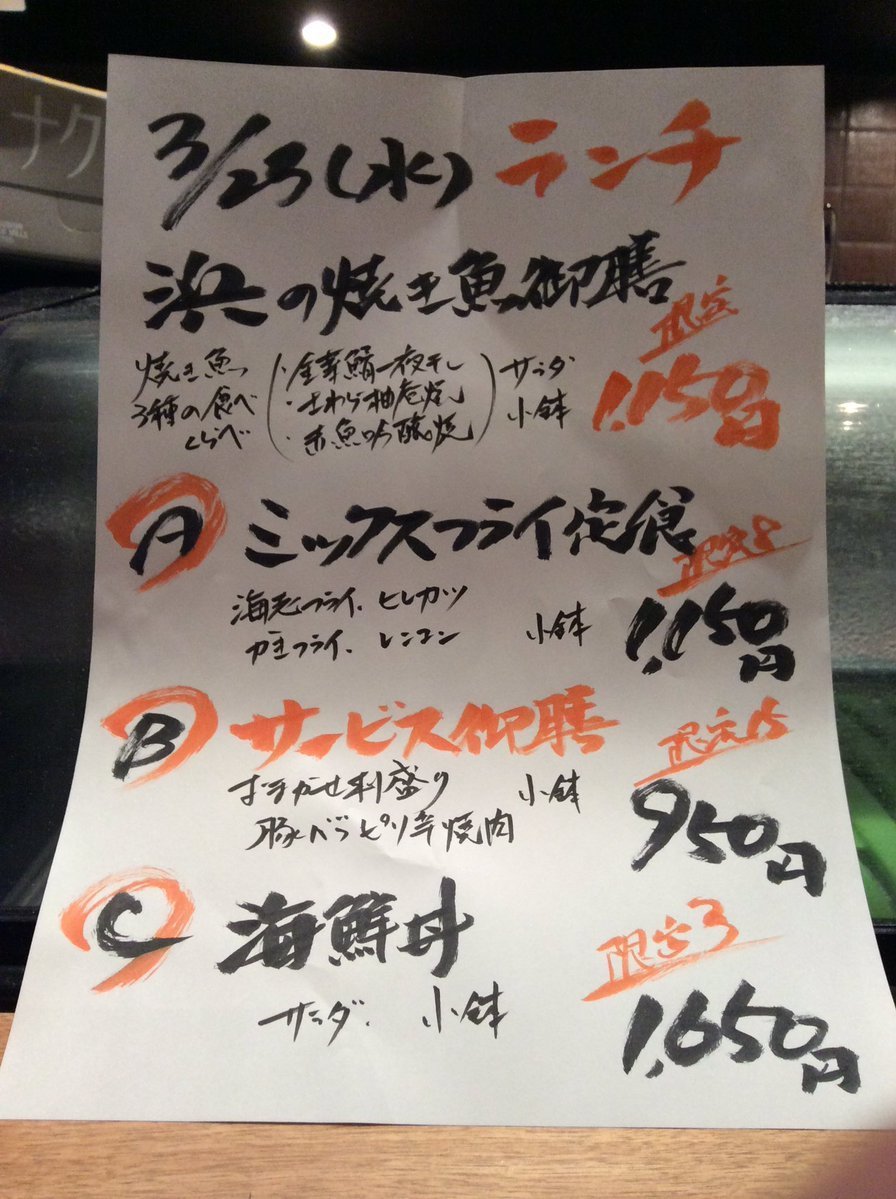 ナク
3/23(水) ランチ
浜の焼き魚御膳
限定
焼き魚
3種の食べ
くらべ
・金華鯖一夜干し
・さわら柚庵焼
・赤魚吟醸焼
サラダ
小鉢
1,150円
A ミックスフライ定食
限定8
海老フライ、ヒレカツ
カキフライ、レンコン 小鉢
1,150円
B サービス御膳
限定15
おまかせ刺盛り 小鉢
豚バラピリ辛焼肉
950円
C 海鮮丼
限定3
サラダ、小鉢
1,650円